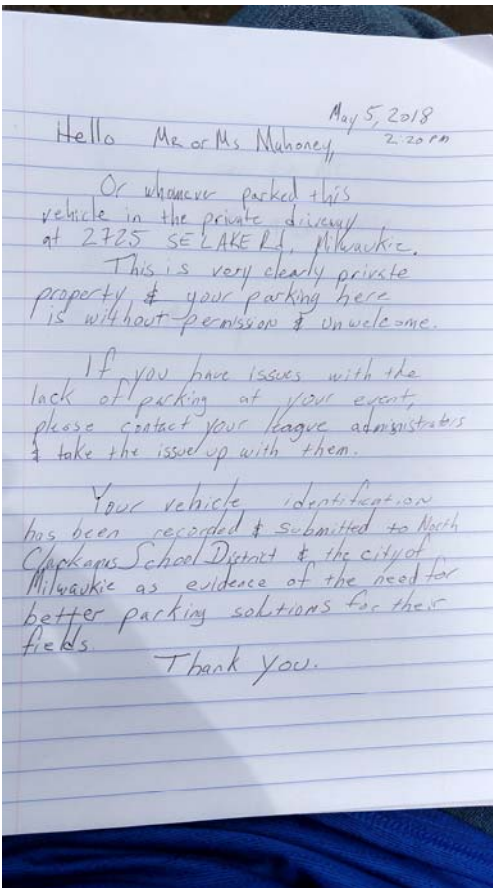 May 5, 2018
2:20 PM
Hello Mr or Ms Mahoney,
Or whomever parked this
vehicle in the private driveway
at 2725 SE LAKE Rd, Milwaukie.
This is very clearly private
property, & your parking here
is without permission & unwelcome.
If you have issues with the
lack of parking at your event,
please contact your league administrators
& take the issue up with them.
Your vehicle identification
has been recorded & submitted to North
Clackamas School District & the city of
Milwaukie as evidence of the need for
better parking solutions for their
fields.
Thank you.